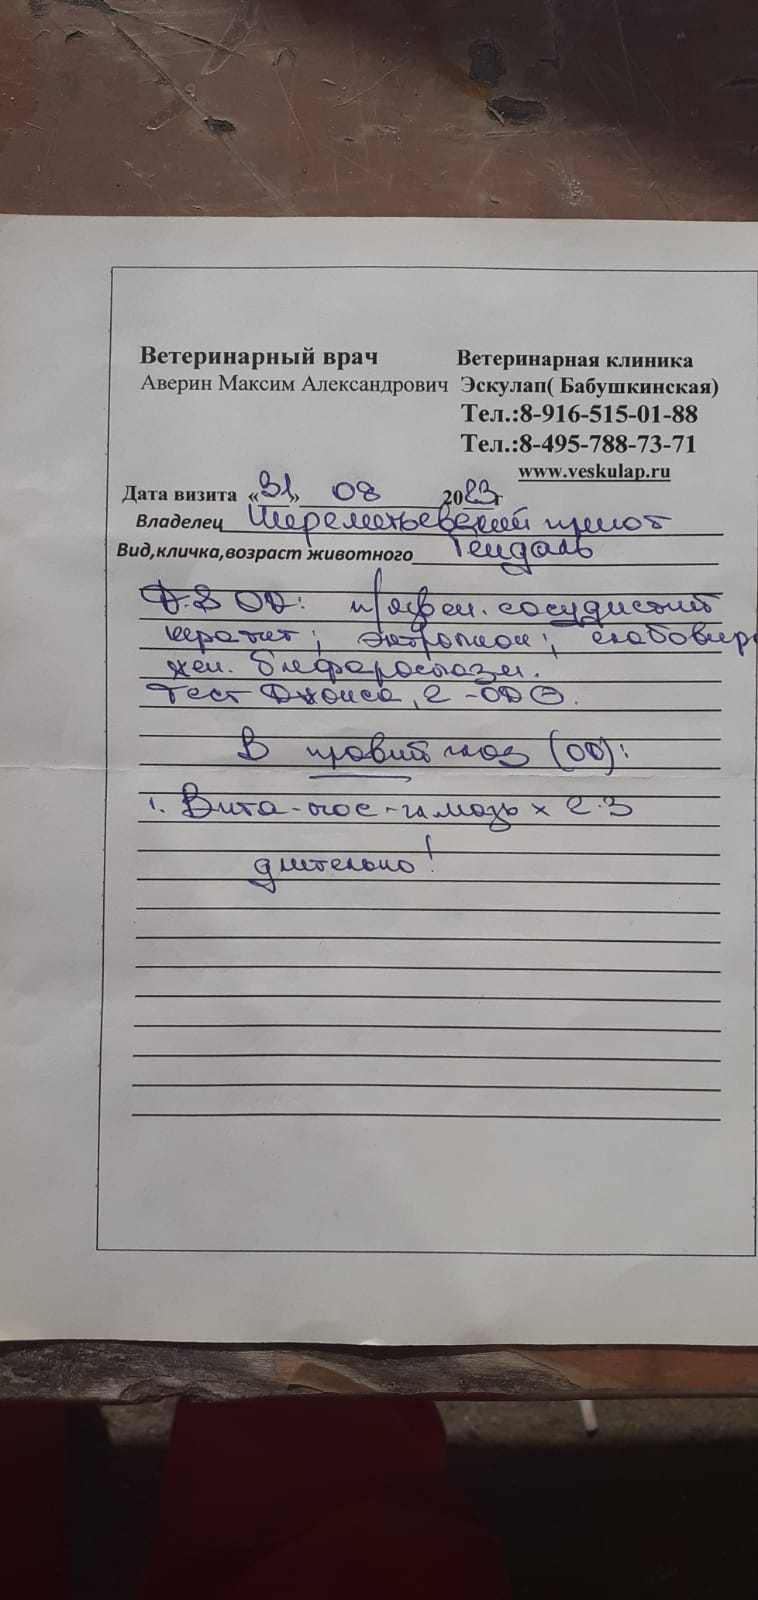 Ветеринарный врач
Ветеринарная клиника
Аверин Максим Александрович
Эскулап( Бабушкинская)
Тел.:8-916-515-01-88
Тел.:8-495-788-73-71
www.veskulap.ru
Дата визита «31» 08 2023г
Владелец Шереметьевский приют
Вид,кличка,возраст животного Тендаль
D.S OD: сосудистый
кератит; энтропион; слабовыр
жен. блефароспазм.
Тест Джонса, 2 -OD ⊖.
В правый глаз (OD):
1. Вита-пос-гл мазь х 2-3
длительно!